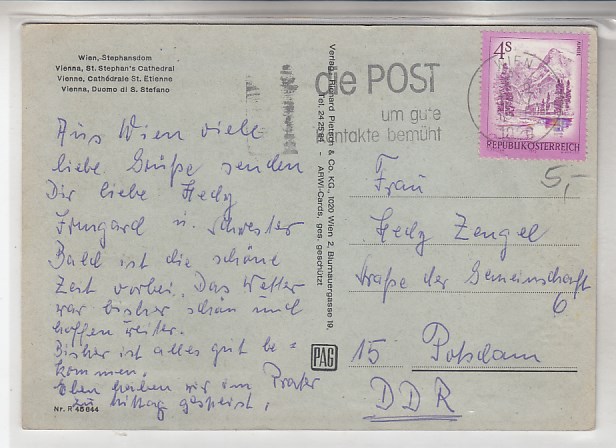 Wien, Stephansdom
Vienna, St. Stephan's Cathedral
Vienne, Cathédrale St. Etienne
Vienna, Duomo di S. Stefano
Aus Wien viele
liebe Grüße senden
Dir liebe Hedy
Irmgard u. Schwester
Bald ist die schöne
Zeit vorbei. Das Wetter
war bisher schön und
hoffen weiter.
Bisher ist alles gut be=
kommen.
Eben haben wir im Prater
zu Mittag gespeist.
Nr. R 45 644
Verlag Richard Pietsch & Co. KG., 1020 Wien 2, Blumauergasse 19,
Tel. 24 25 - ARWI-Cards, ges. geschützt
PAG
die POST
um gute
ntakte bemüht
WIEN
4S
REPUBLIK ÖSTERREICH
5,-
Frau
Hedy Zengel
Straße der Gemeinschaft
6
15 Potsdam
DDR